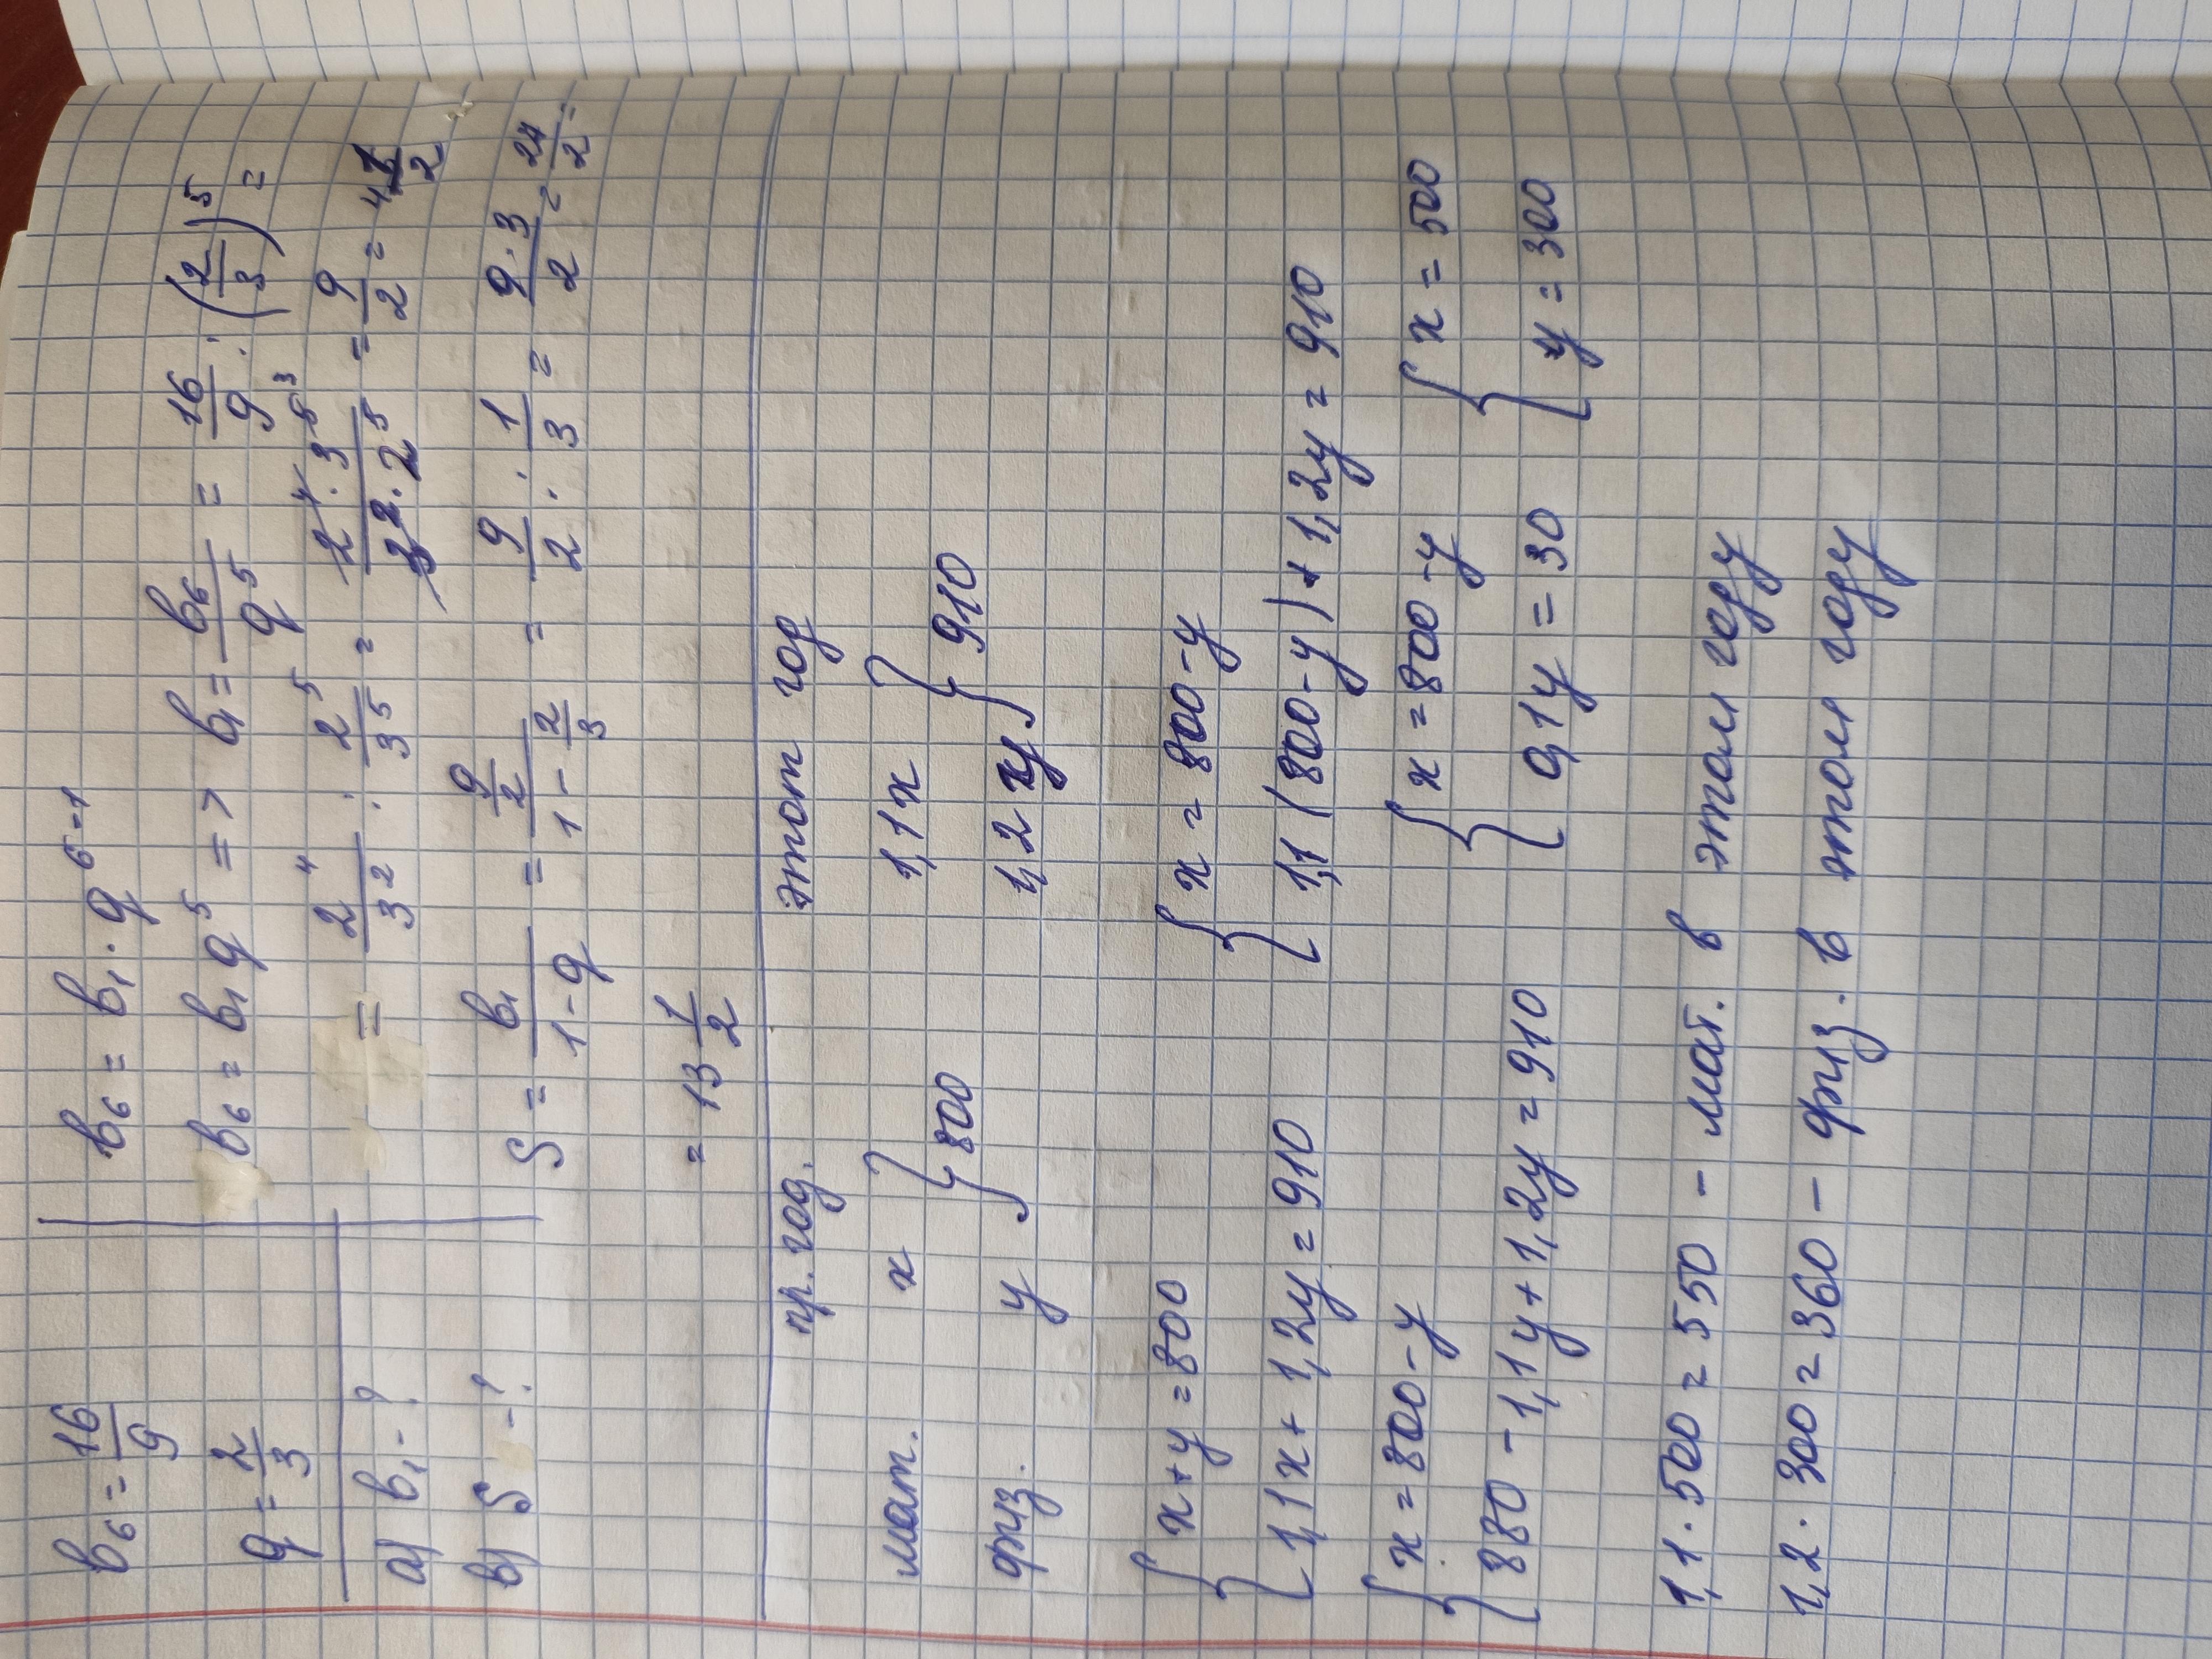 b₆ = 16/9
q = 2/3
a) b₁ - ?
b) S - ?
b₆ = b₁ · q⁶⁻¹
b₆ = b₁ q⁵ => b₁ = b₆/q⁵ = 16/9 : (2/3)⁵ =
= 2⁴/3² : 2⁵/3⁵ = (2⁴ · 3⁵)/(3² · 2⁵) = 9/2 = 4 1/2
S = b₁/(1-q) = (9/2)/(1 - 2/3) = 9/2 : 1/3 = (9·3)/2 = 27/2 =
= 13 1/2
пр. год. этот год
мат. x } 800 1,1x } 910
физ. y 1,2y
{ x+y=800 { x = 800-y
1,1x + 1,2y = 910 1,1(800-y) + 1,2y = 910
{ x = 800-y { x = 800-y { x = 500
880 - 1,1y + 1,2y = 910 0,1y = 30 y = 300
1,1 · 500 = 550 - мат. в этом году
1,2 · 300 = 360 - физ. в этом году